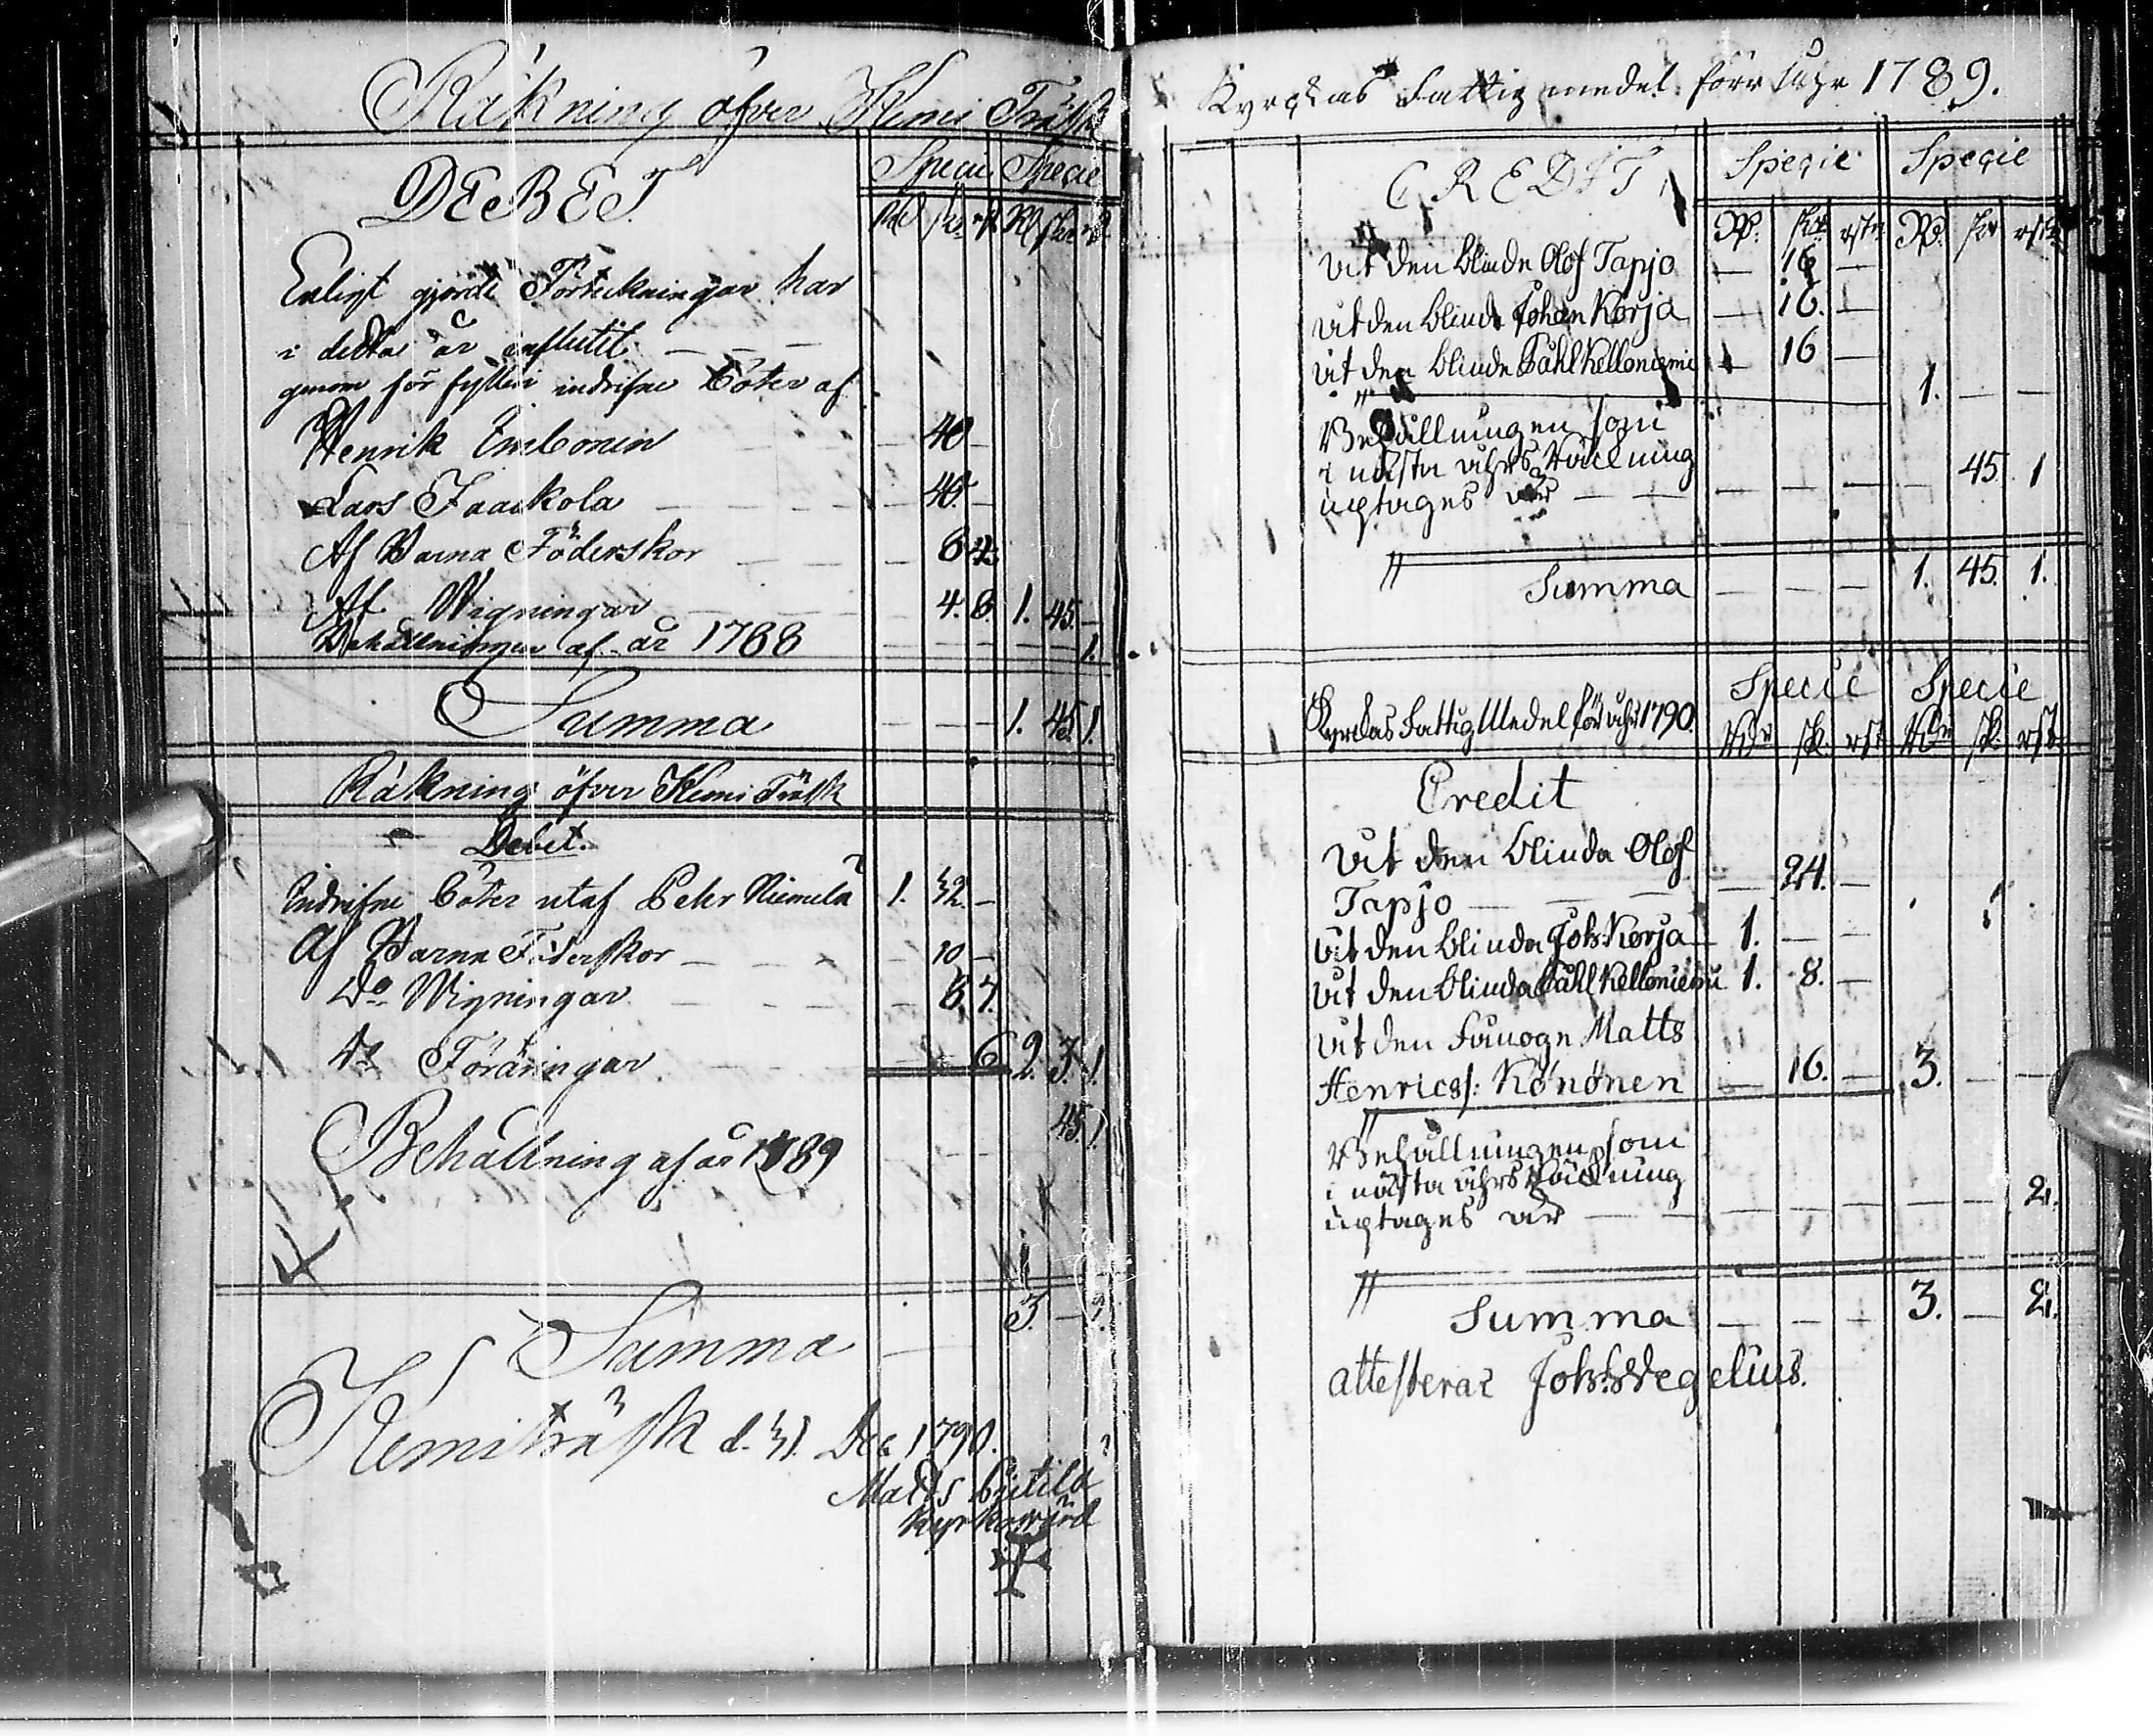 Räkning öfver Kemi Träsk
DEBET.
Specie Specie
Rd sk rst Rd sk rst
Enligt gjorde Förteckningar har
i detta år influtit
genom för fylleri indrifne Böter af
Henrik Imbonen — 40 —
Lars Jaakola — 40. —
Af Barna Föderskor — 6 4.
Af Wigningar 4. 8. 1. 45. —
Behållningen af år 1788 — — — — — 1.
Summa — — — 1. 45. 1.
Räkning öfver Kemi Träsk
Debet.
Indrifne Böter utaf Pehr Niemelä 1. 32. —
Af Barna Föderskor — 10 —
Do Wigningar — 8. 7.
Do Föräringar — — 6 2. 3. 1.
Behållning af år 1789 — — 45. 1.
Summa — 3. — 2.
Kemiträsk d. 31. Dec 1790.
Matts
Kyrkowärd
Kyrckas Fattig medel förr Uhr 1789.
CREDIT
Specie Specie
Rd. sk. rst. Rd. sk rst.
Ut den blinde Olof Tapjo — 16 —
ut den blinde Johan Korja — 16. —
ut den blinde Påhl Kelloniemi — 16 —
" 1. — —
Behållningen som
i nästa åhrs Räckning
uptages är — — — — — — 45. 1
" Summa — — — 1. 45. 1.
Kyrckas Fattig Medel för åhr 1790.
Specie Specie
Rdr sk. rst Rdr sk. rst.
Credit
Ut den blinda Olof
Tapjo — — — 24. —
Ut den blinda Joh. Korja 1. — —
Ut den blinda Påhl Kelloniemi 1. 8. —
Ut den Matts
Henricss: Könönen — 16. — 3. — —
"
Behållningen som
i nästa åhrs Räckning
uptages är — — — — — — — 2.
" Summa — — — 3. — 2.
attesterar Joh: Wegelius.